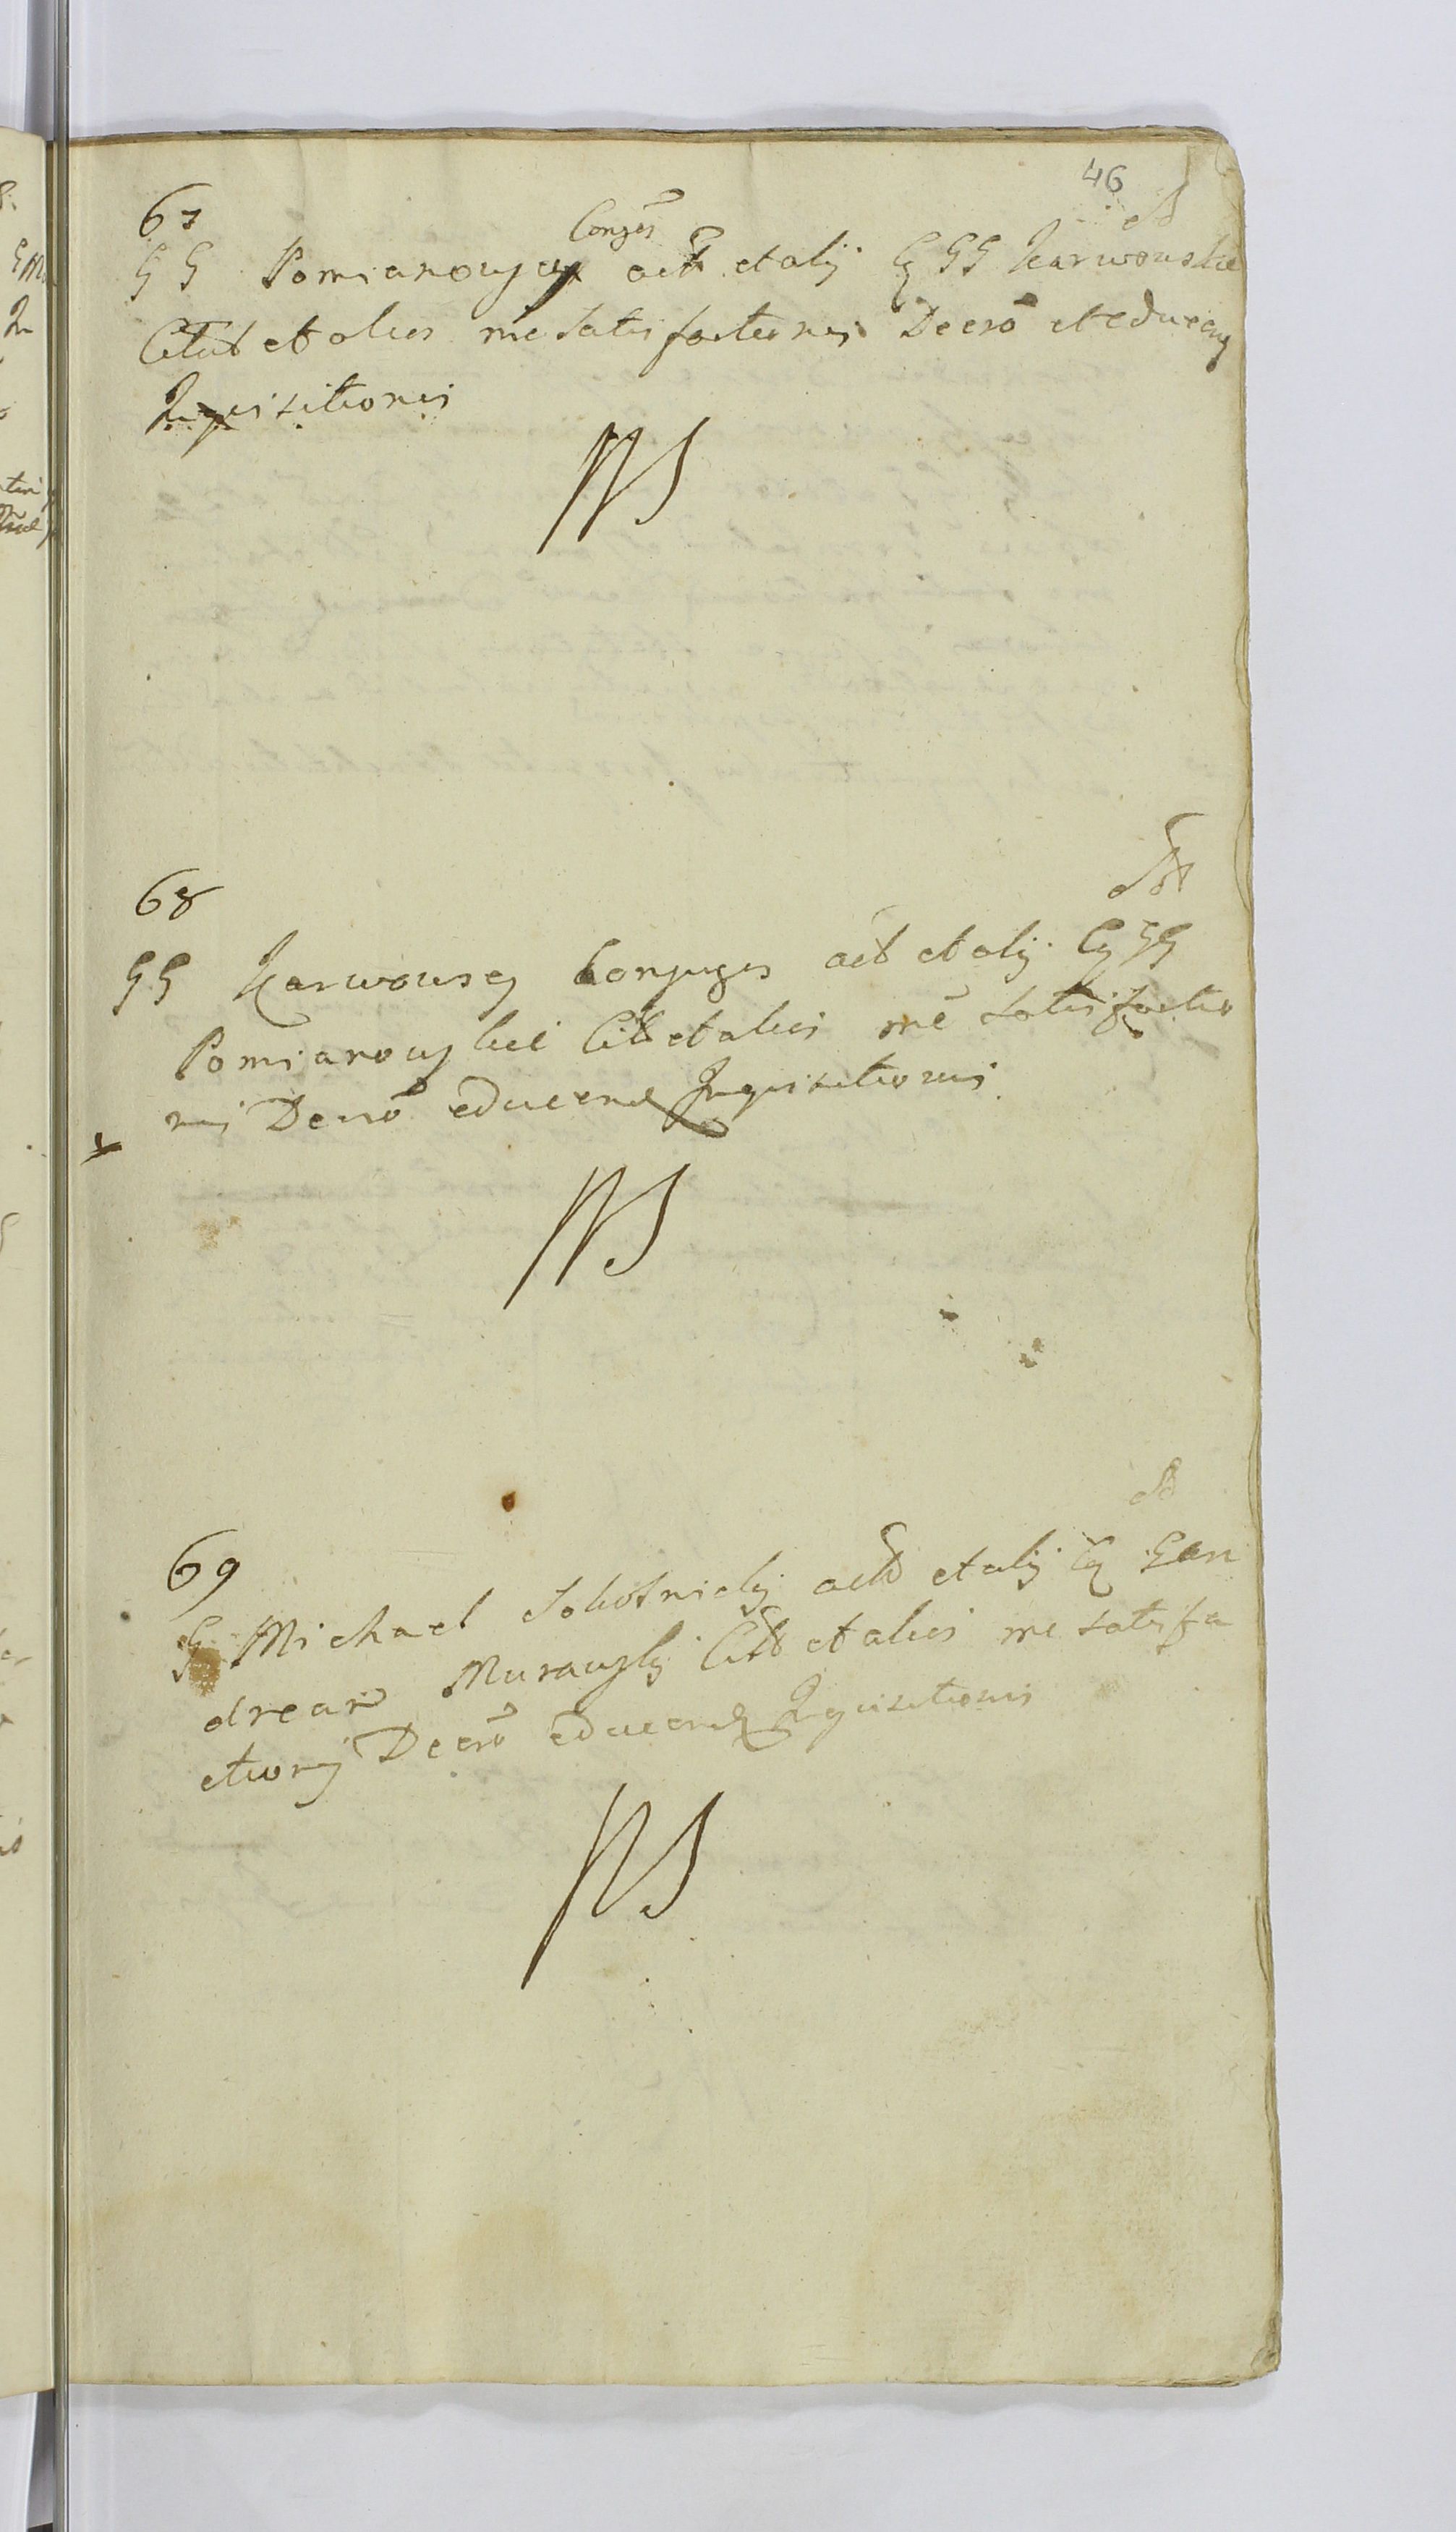 46
67
Conges
G G Pomianowscy act et alij C GG Karwowskie
Citat et alios rne satisfactionis Decro et educen
Inquisitionis
NS
68
GG Karwowscy Conjuges act et alij C GG
Pomianowskie Citt et alios rne satisfactio
nis Decro educend Inquisitionis
NS
69
G Michael Sokolnicky act et alij C Gen
drean Murawsky Citt et alios rne satisfa
ctionis Decro educend Inquisitionis
NS